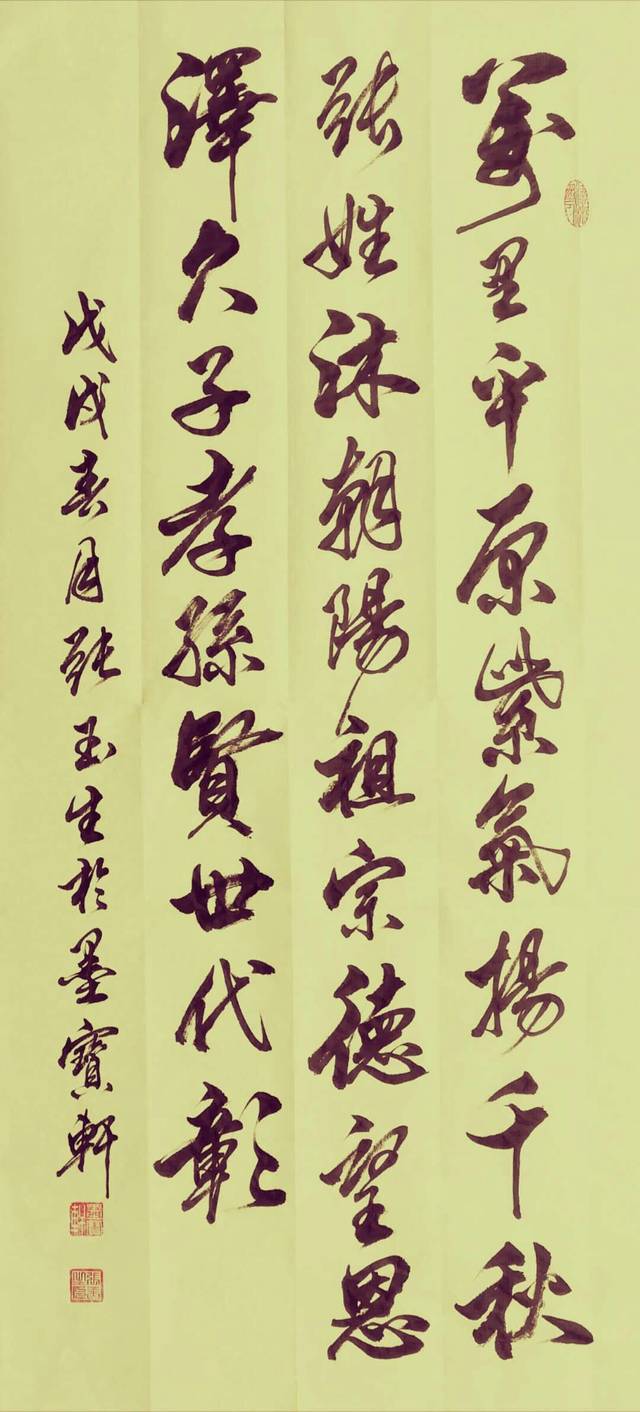 萬里平原紫氣揚千秋
張姓沐朝陽祖宗德望恩
澤久子孝孫賢世代彰
戊戌春月張玉生於墨寶軒